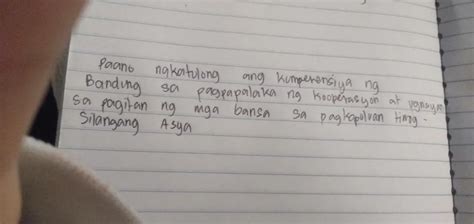 Paano ngkatulong ang kumperensiya ng
Bandung sa pagpapalaka ng kooperasyon at
sa pagitan ng mga bansa sa pagkapuluan timog-
Silangang Asya